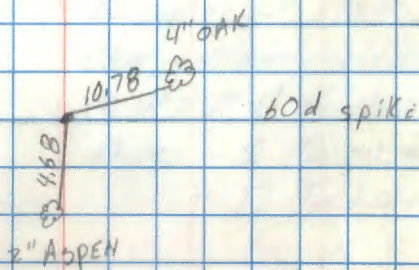 4" OAK
10.78
60d spike
4.68
2" ASPEN